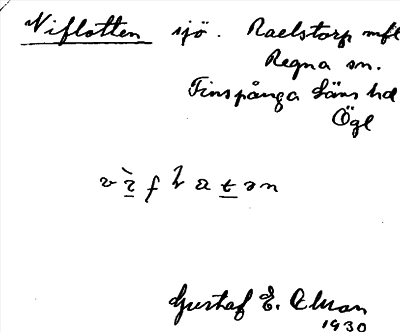 Viflotten sjö. Raelstorp mfl
Regna sn.
Finspånga läns hd
Ögl
Gustaf E. Alman
1930